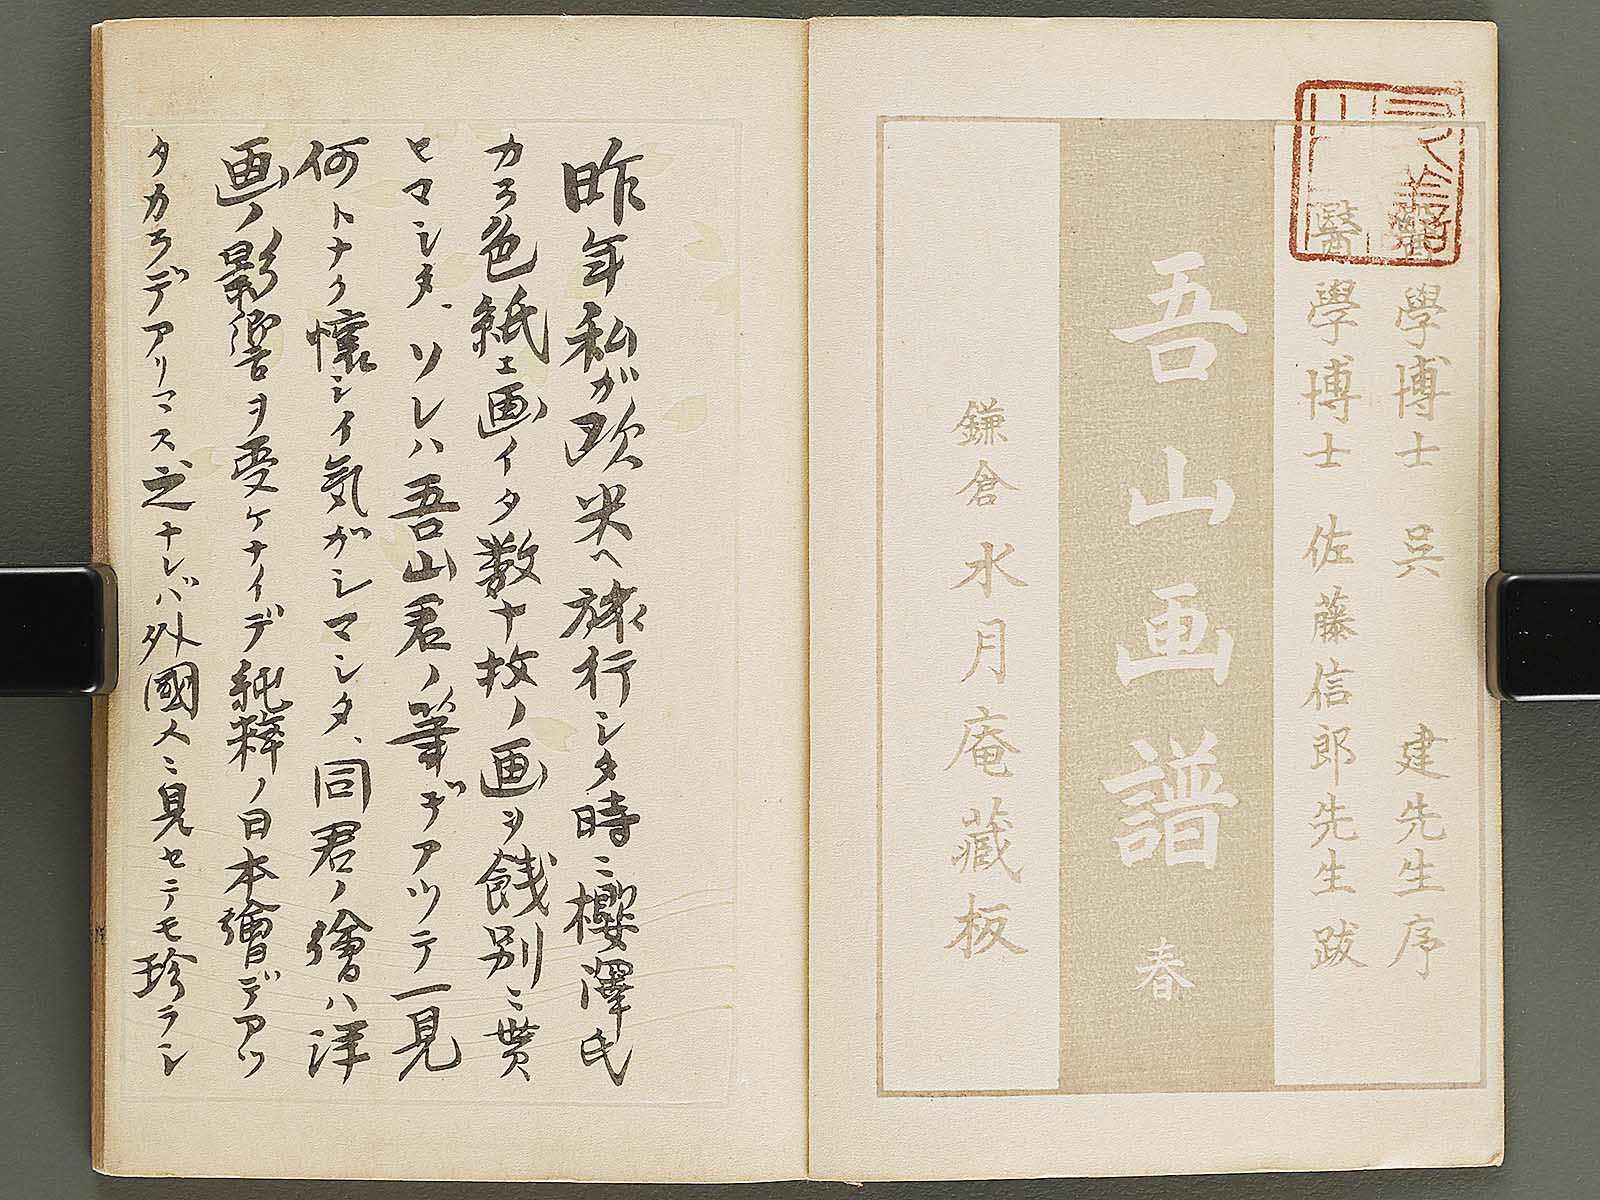 醫學博士 呉 建先生序
醫學博士 佐藤信郎先生跋
吾山画譜 春
鎌倉 水月庵蔵板
昨年私ガ欧米ヘ旅行シタ時ニ櫻澤氏
カラ色紙エ画イタ数十枚ノ画ヲ餞別ニ貰
ヒマシタ、ソレハ吾山君ノ筆デアツテ一見
何トナク懐シイ気ガシマシタ、同君ノ繪ハ洋
画ノ影響ヲ受ケナイデ純粋ノ日本繪デアツ
タカラデアリマス之ナレバ外國人ニ見セテモ珍ラシ